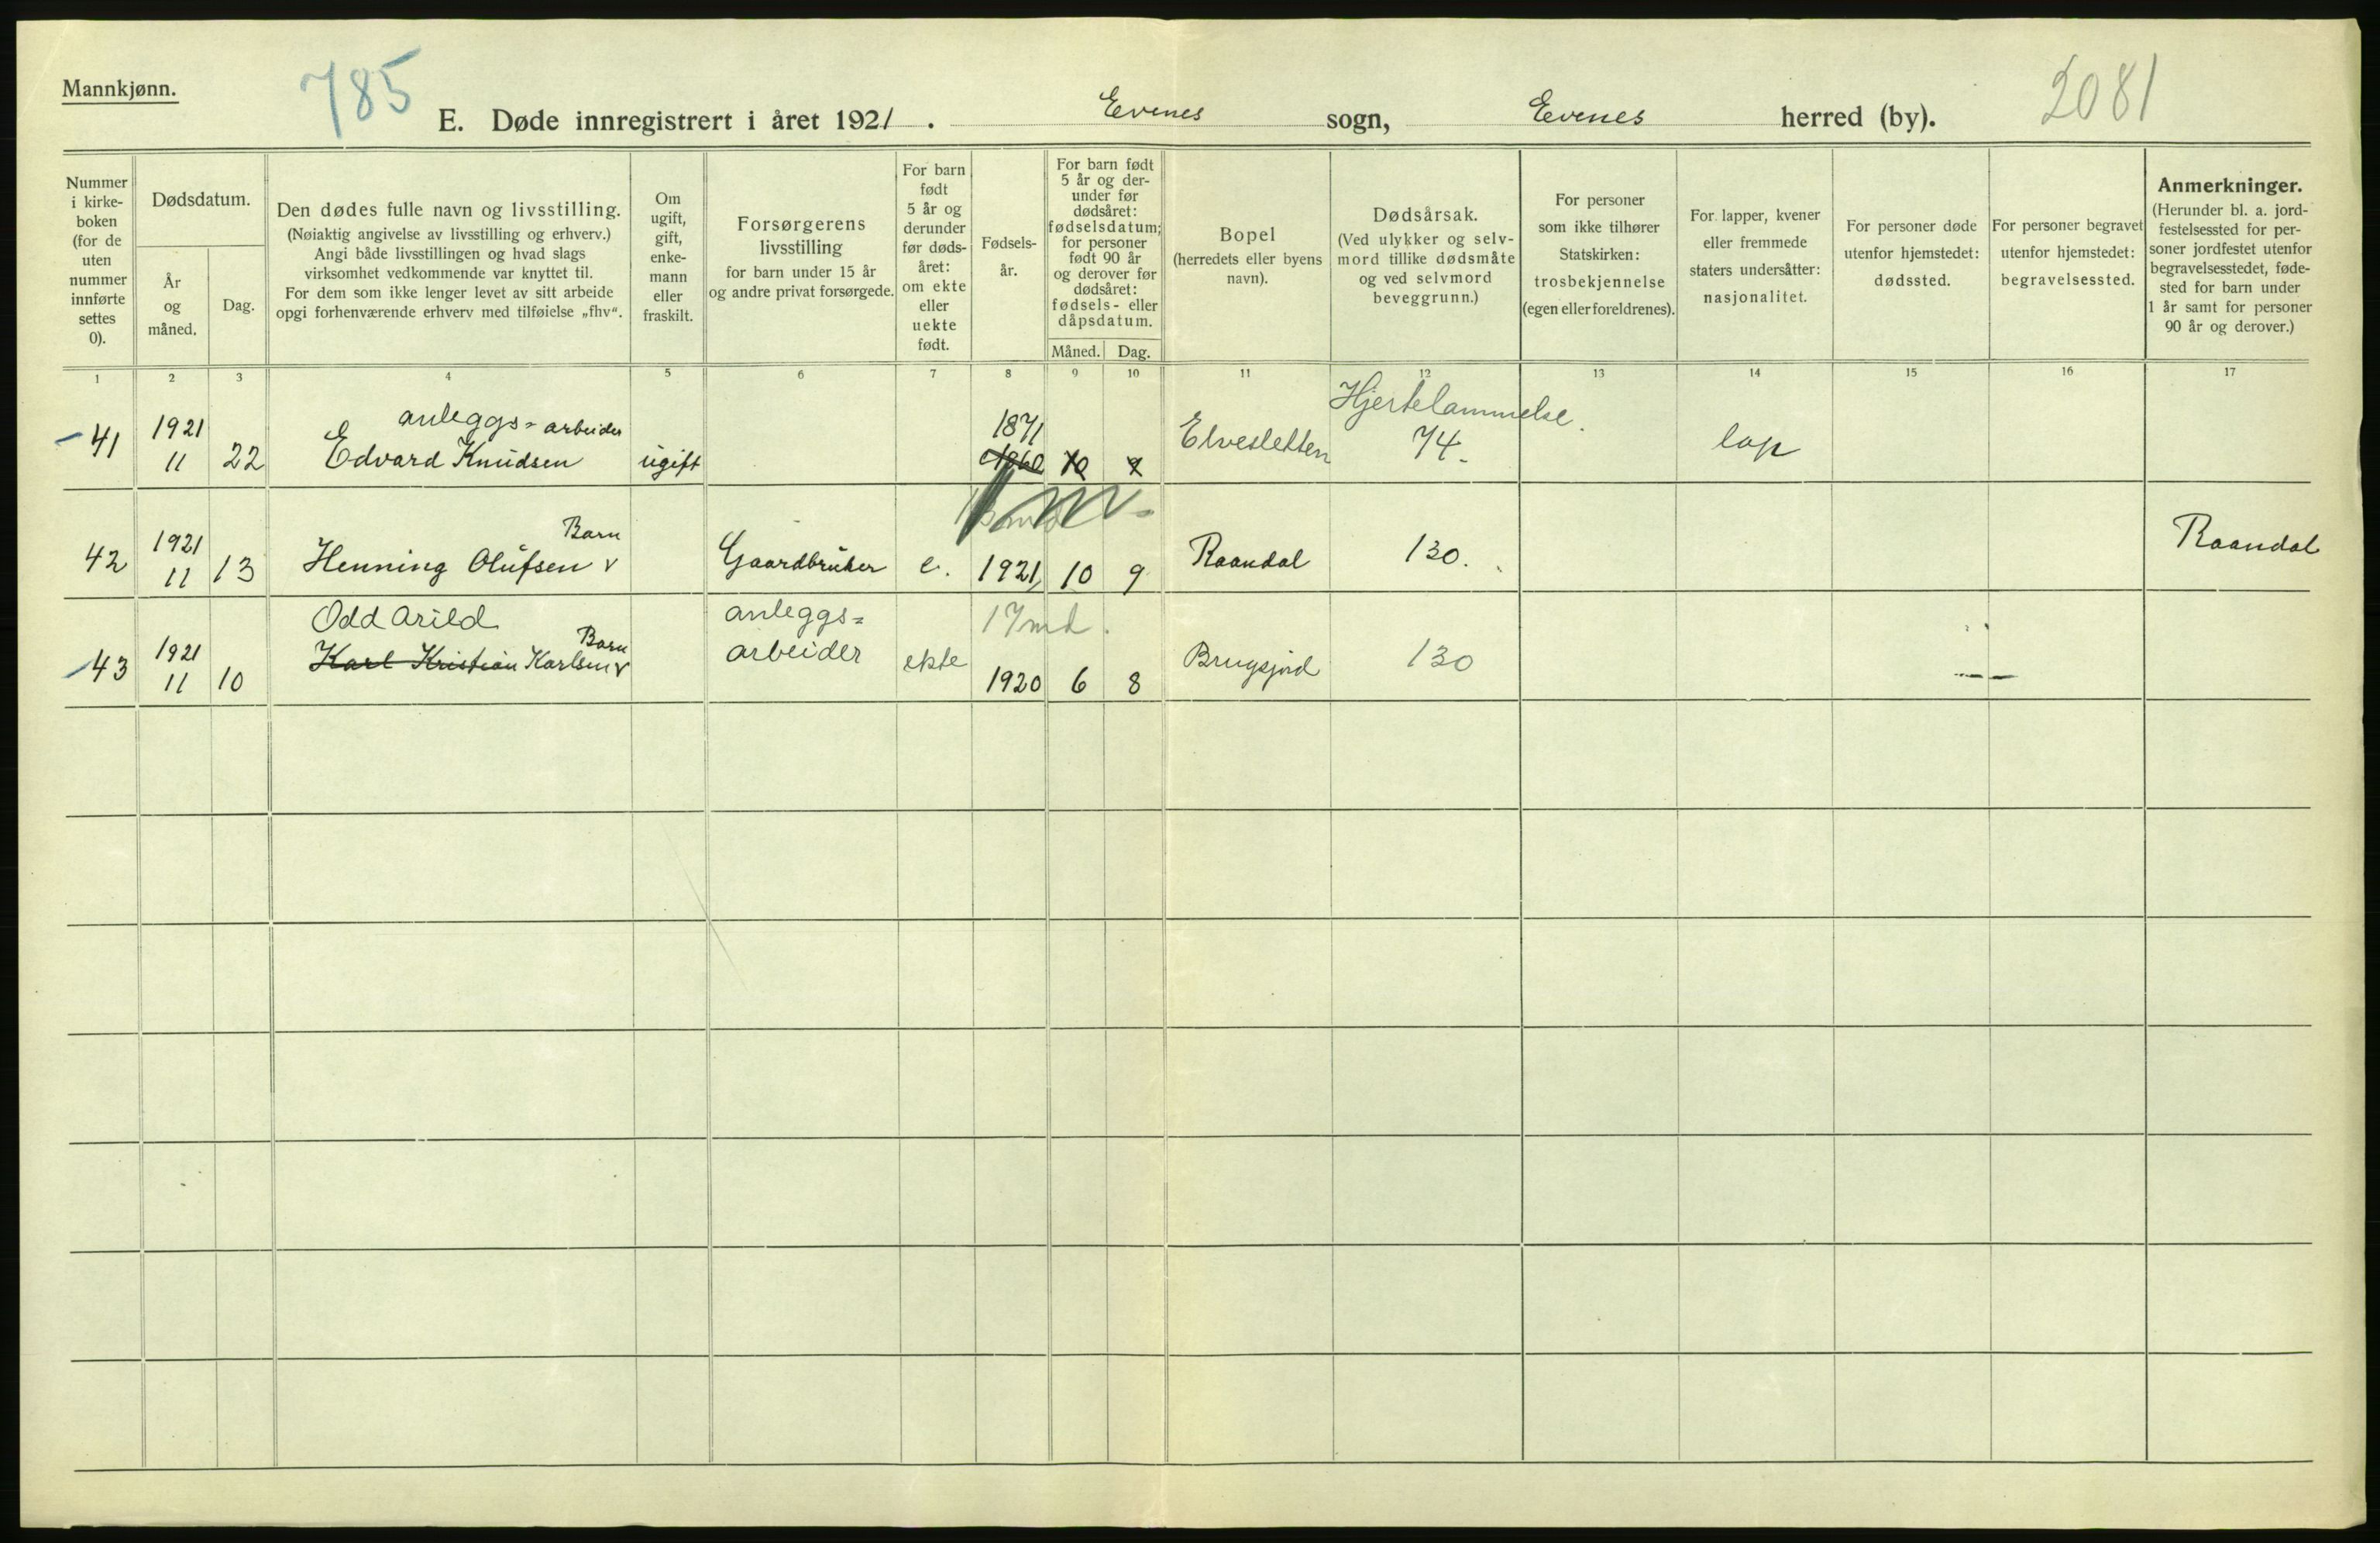 Mannkjønn.
785
E. Døde innregistrert i året 1921. Evenes sogn, Evenes herred (by).
2081
Nummer
i kirke-
boken
(for de
uten
nummer
innførte
settes
0).
Dødsdatum.
År
og
måned.
Dag.
Den dødes fulle navn og livsstilling.
(Nøiaktig angivelse av livsstilling og erhverv.)
Angi både livsstillingen og hvad slags
virksomhet vedkommende var knyttet til.
For dem som ikke lenger levet av sitt arbeide
opgi forhenværende erhverv med tilføielse „fhv“.
Om
ugift,
gift,
enke-
mann
eller
fraskilt.
Forsørgerens
livsstilling
for barn under 15 år
og andre privat forsørgede.
For barn
født
5 år og
derunder
før døds-
året:
om ekte
eller
uekte
født.
Fødsels-
år.
For barn født
5 år og der-
under før
dødsåret:
fødselsdatum;
for personer
født 90 år
og derover før
dødsåret:
fødsels- eller
dåpsdatum.
Måned. Dag.
Bopel
(herredets eller byens
navn).
Dødsårsak.
(Ved ulykker og selv-
mord tillike dødsmåte
og ved selvmord
beveggrunn.)
For personer
som ikke tilhører
Statskirken:
trosbekjennelse
(egen eller foreldrenes).
For lapper, kvener
eller fremmede
staters undersåtter:
nasjonalitet.
For personer døde
utenfor hjemstedet:
dødssted.
For personer begravet
utenfor hjemstedet:
begravelsessted.
Anmerkninger.
(Herunder bl. a. jord-
festelsessted for per-
soner jordfestet utenfor
begravelsesstedet, føde-
sted for barn under
1 år samt for personer
90 år og derover.)
1 2 3 4 5 6 7 8 9 10 11 12 13 14 15 16 17
anleggs= arbeider 1871 Hjertelammelse.
41 1921 11 22 Edvard Knudsen ugift 10 9 Elvesletten 74. lap
Barn
42 1921 11 13 Henning Olufsen v Gaardbruker e. 1921 10 9 Raandal 130. Raandal
Odd Arild anleggs= 17 md.
Barn
43 1921 11 10 Karl Kristian Karlsen v arbeider ekte 1920 6 8 Brugsjord 130